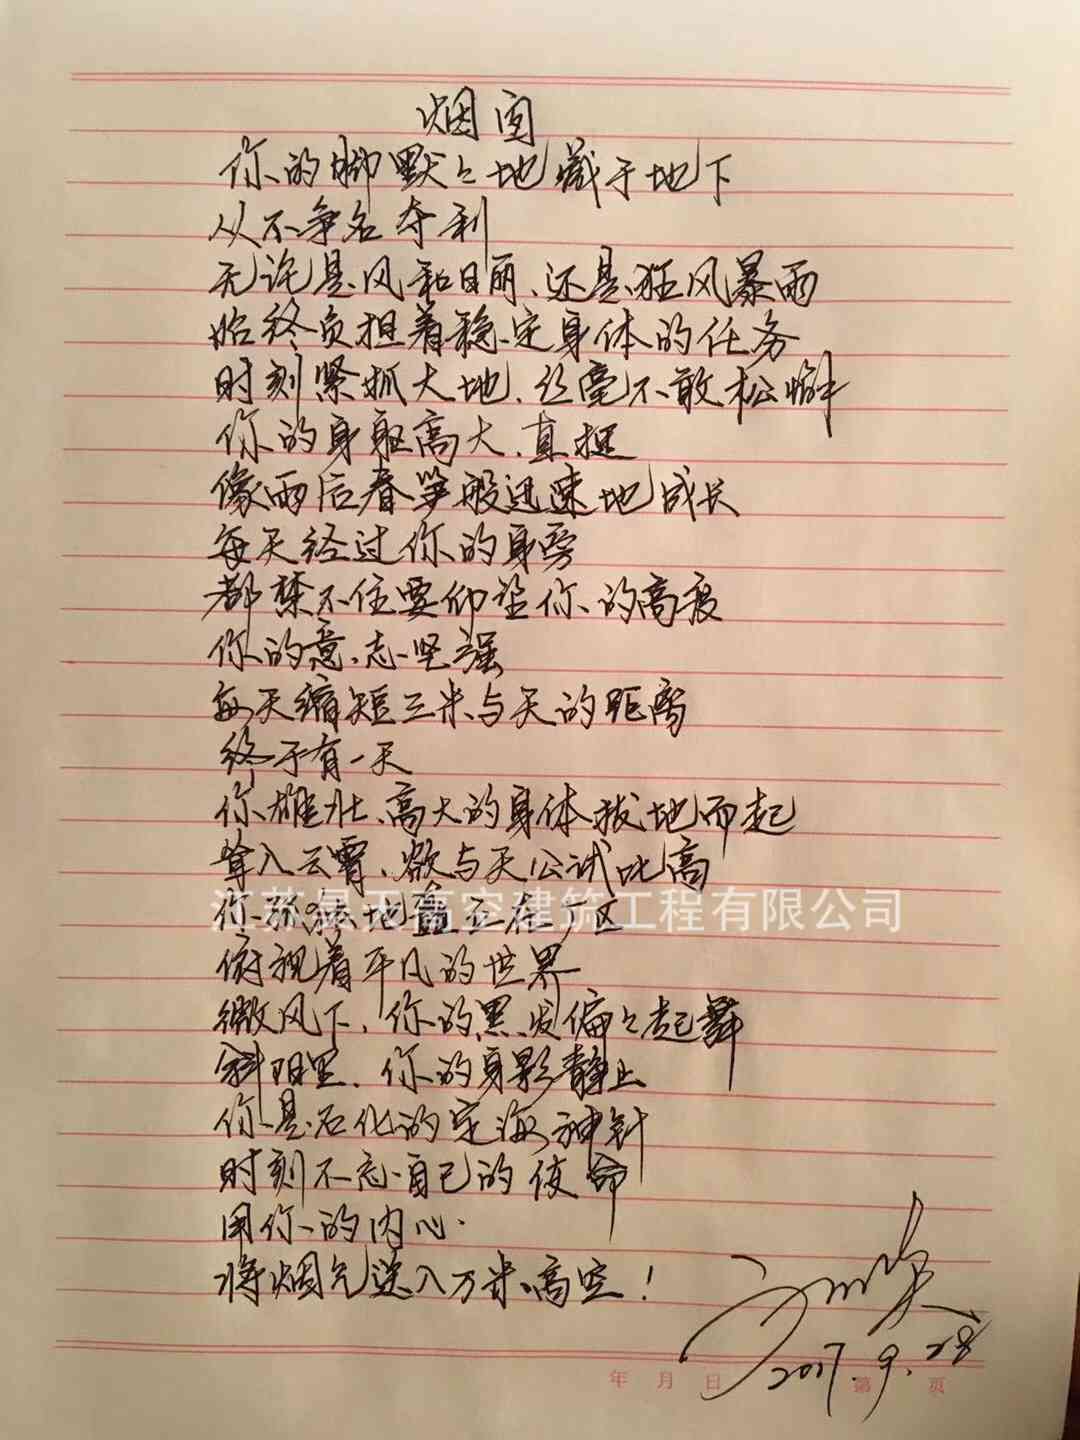 烟囱
你的脚默々地藏于地下
从不争名夺利
无许是风和日丽、还是狂风暴雨
始终负担着稳定身体的任务
时刻紧抓大地、丝毫不敢松懈
你的身躯高大、直挺
像雨后春笋般迅速地成长
每天经过你的身旁
都禁不住要仰望你的高度
你的意志坚强
每天缩短三米与天的距离
终于有一天
你雄壮、高大的身体拔地而起
耸入云霄、欲与天公试比高
你孤独地矗立在厂区
江苏昊天高空建筑工程有限公司
俯视着平凡的世界
微风下、你的黑发偏々起舞
斜阳里、你的身影静止
你是石化的定海神针
时刻不忘自己的使命
用你的内心
将烟气送入万米高空！
2017.9.28
年 月 日 第 页